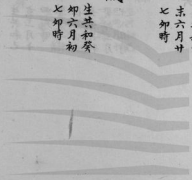 未六月廿
七卯時
生共和癸
卯六月初
七卯時